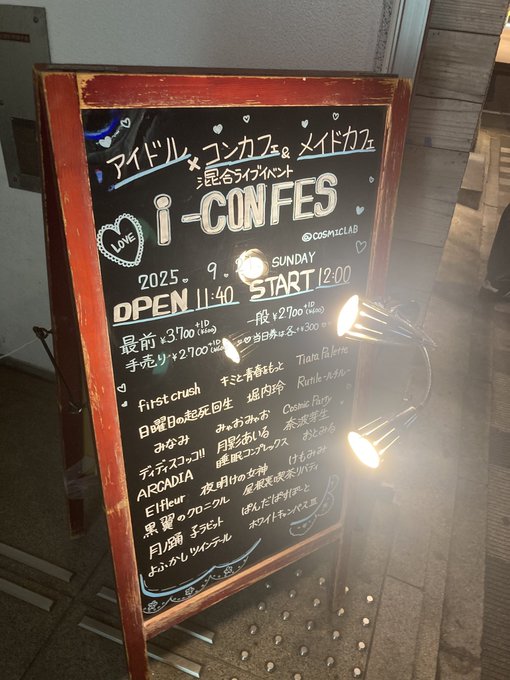 アイドル×コンカフェ&メイドカフェ
混合ライブイベント
i-CONFES
LOVE
@COSMICLAB
2025. 9. SUNDAY
OPEN 11:40 START 12:00
最前 ¥3,700 +1D (¥600) 一般 ¥2,700 +1D (¥600)
手売り ¥2,700 +1D (¥600) ♡当日券は各+¥300
first crush キミと青春をもっと Tiara Palette
日曜日の起死回生 堀内玲 Rutile-ルチル-
みなみ みゃおみゃお Cosmic Party
ディディスコッコ!! 月影あいる 奈波芽生
ARCADIA 睡眠コンプレックス おとみる
Elfleur 夜明けの女神 けもみみ
黒翼のクロニクル 屋根裏喫茶リバティ
月ノ踊 よラビット ぱんだぱすぽーと
よふかしツインテール ホワイトキャンパスIII